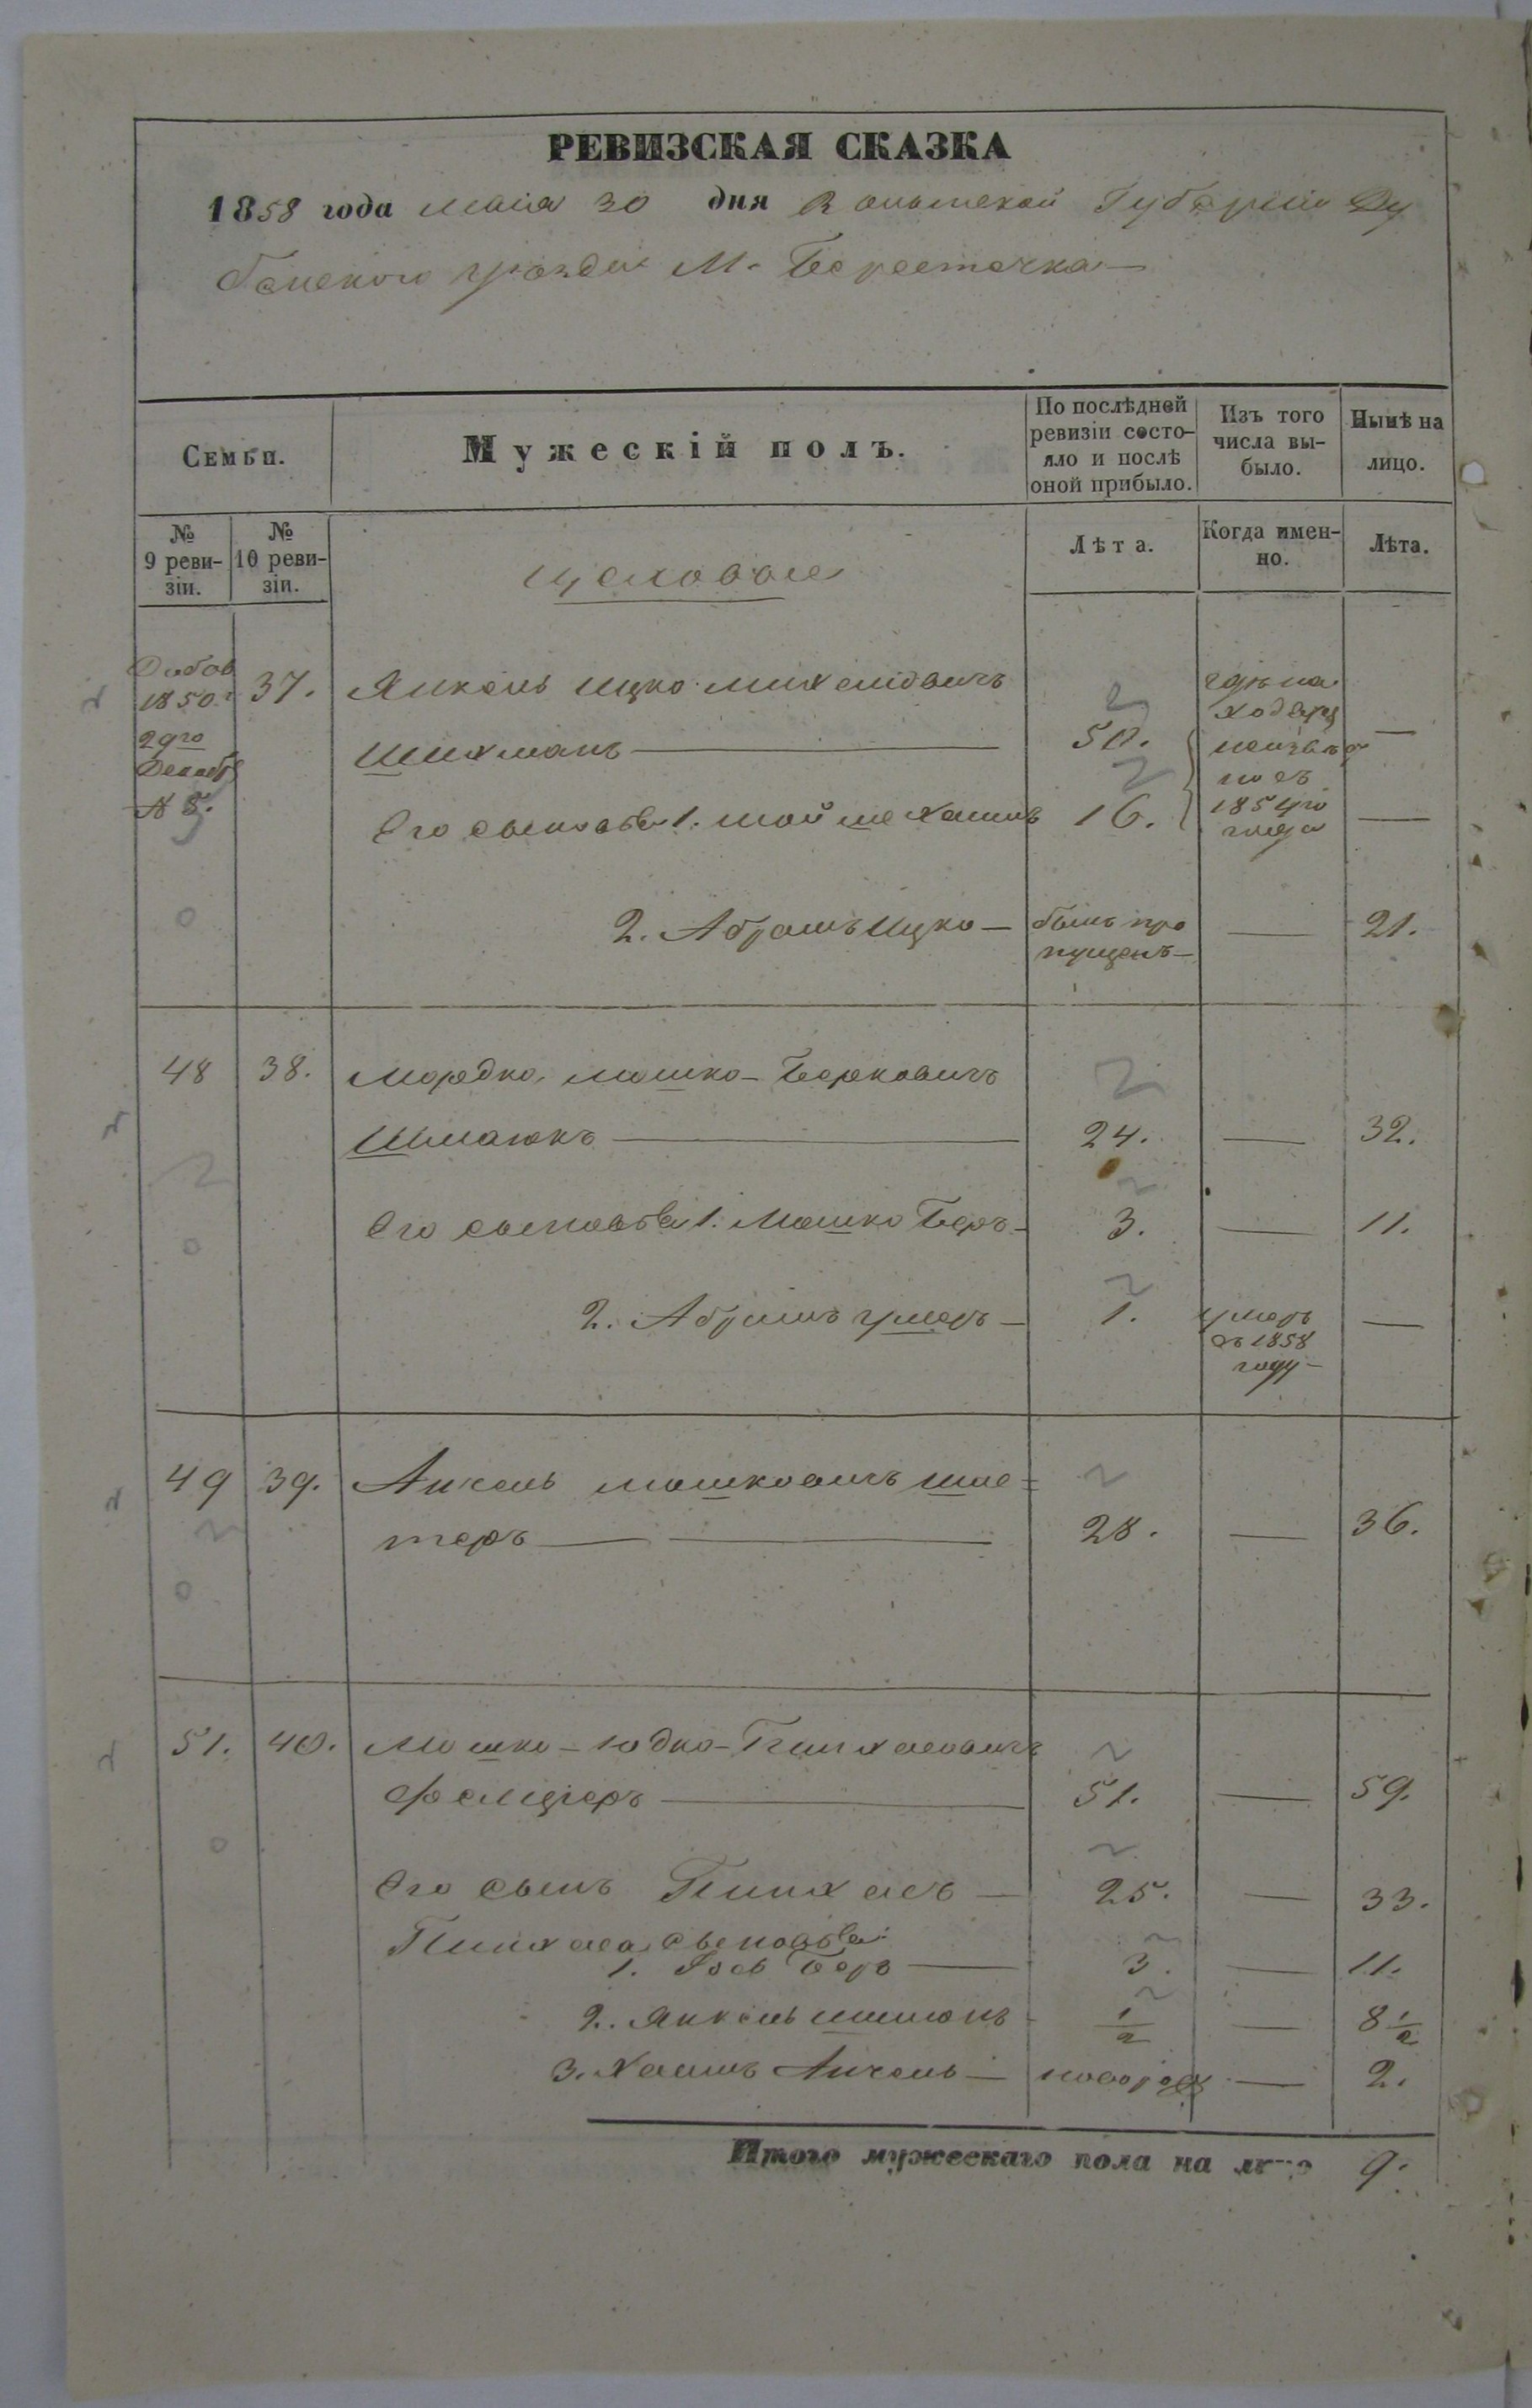 РЕВИЗСКАЯ СКАЗКА
1858 года маія 30 дня Волынской Губерніи Ду
бенского уезда М. Берестечка
Семьи.
Мужескій полъ.
По послѣдней ревизіи состо-яло и послѣ оной прибыло.
Изъ того числа вы-было.
Нынѣ на лицо.
№ 9 реви-зіи.
№ 10 реви-зіи.
Лѣта.
Когда имен-но.
Лѣта.
Цеховые
Добав 1850 г 29го Декабр № 5.
37. Янкель Ицко
Шихманъ — 50. —
Его сыновья 1. Мойше Хаимъ 16. —
где на ходятся неизвѣстно съ 1854го года
2. Абрамъ Ицко — былъ про пущенъ — — 21.
48 38. Мордко Мошко-Берковичъ
24. — 32.
Его сыновья 1. Мошко Беръ — 3. — 11.
2. Абрамъ умеръ — 1. умеръ въ 1858 году — —
49 39. Анчель Мошковичъ Шае=
теръ — 28. — 36.
51. 40. Мошко-Юдко-Пинхасовичъ
51. — 59.
Его сынъ Пинхасъ — 25. — 33.
Пинхаса сыновья:
1. Беръ — 3. — 11.
2. Янкель Шимонъ 1/2 — 8 1/2
3. Хаимъ Анчель — новорож — 2.
Итого мужескаго пола на лицо 9.